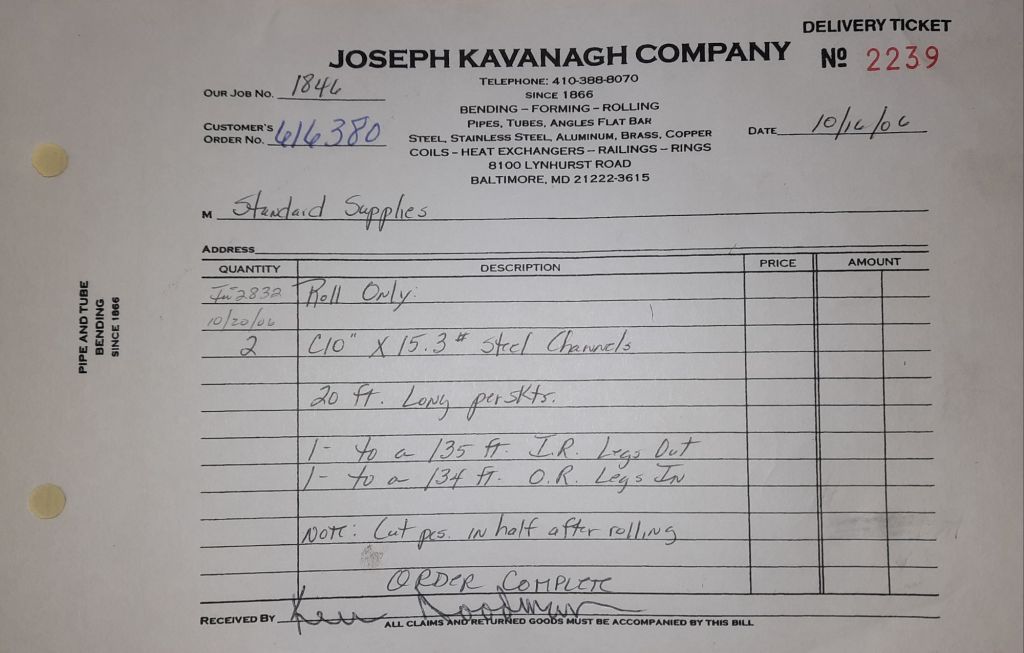 DELIVERY TICKET
JOSEPH KAVANAGH COMPANY Nº 2239
TELEPHONE: 410-388-8070
OUR JOB NO. 1846
SINCE 1866
BENDING – FORMING – ROLLING
PIPES, TUBES, ANGLES FLAT BAR
CUSTOMER'S ORDER NO. 616380
STEEL, STAINLESS STEEL, ALUMINUM, BRASS, COPPER
DATE 10/16/06
COILS – HEAT EXCHANGERS – RAILINGS – RINGS
8100 LYNHURST ROAD
BALTIMORE, MD 21222-3615
M Standard Supplies
ADDRESS
QUANTITY DESCRIPTION PRICE AMOUNT
2832 Roll Only:
10/20/06
2 C10" X 15.3# Steel Channels
20 ft. Long per skts.
1- to a 135 ft. I.R. Legs Out
1- to a 134 ft. O.R. Legs In
Note: Cut pcs. in half after rolling
ORDER COMPLETE
RECEIVED BY Ken
ALL CLAIMS AND RETURNED GOODS MUST BE ACCOMPANIED BY THIS BILL
PIPE AND TUBE
BENDING
SINCE 1866